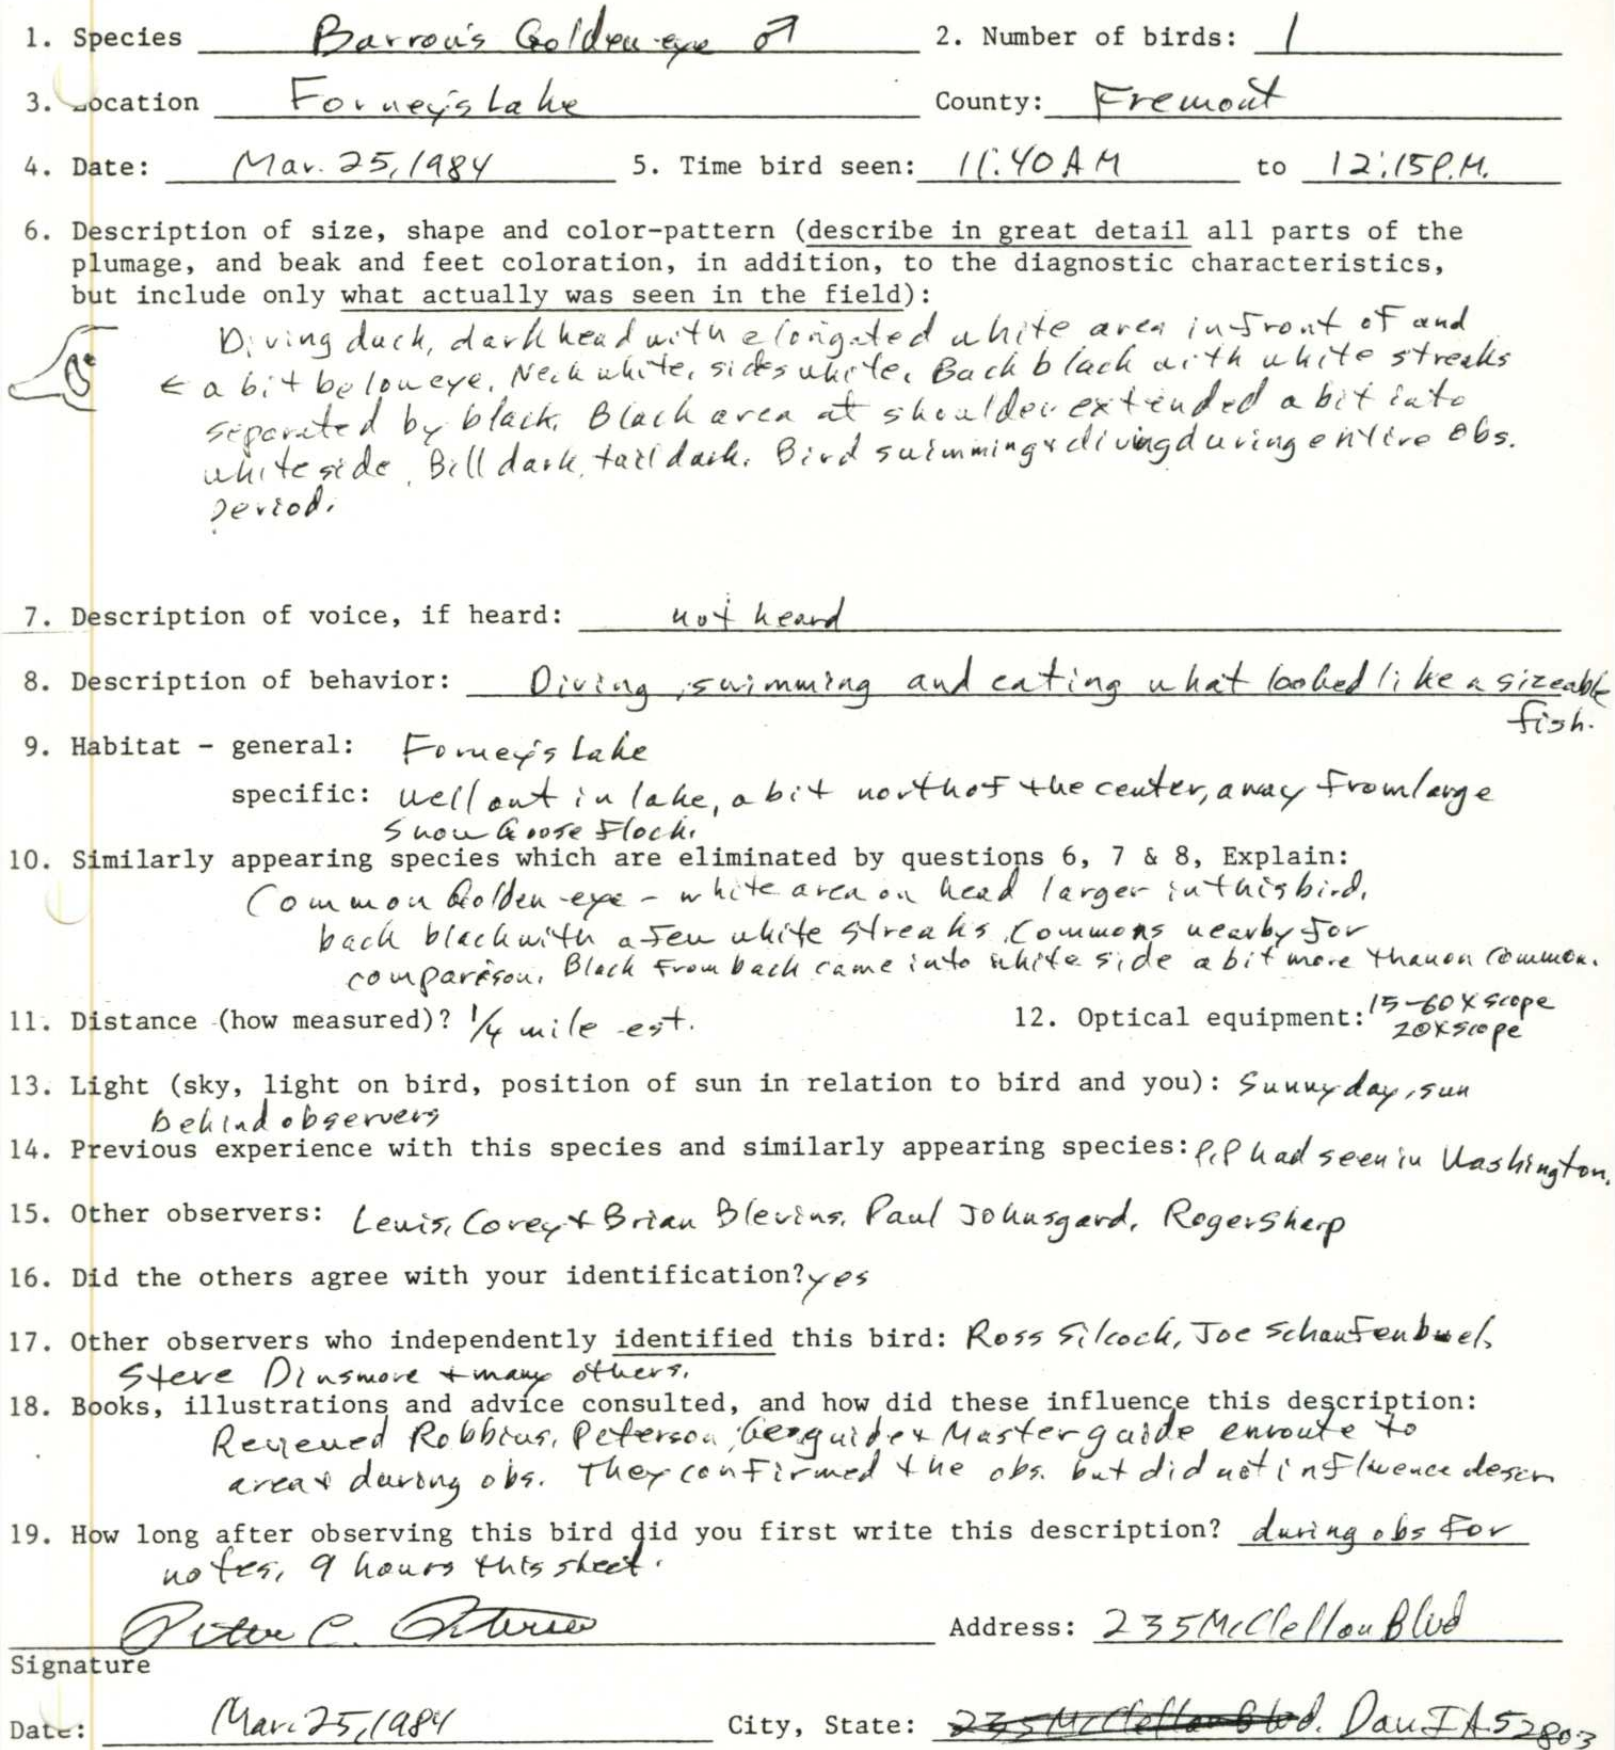 1. Species Barrow's Golden-eye ♂ 2. Number of birds: 1
3. Location Forney's Lake County: Fremont
4. Date: Mar. 25, 1984 5. Time bird seen: 11:40 AM to 12:15 P.M.
6. Description of size, shape and color-pattern (describe in great detail all parts of the
plumage, and beak and feet coloration, in addition, to the diagnostic characteristics,
but include only what actually was seen in the field):
Diving duck, dark head with elongated white area in front of and
← a bit below eye. Neck white, sides white. Back black with white streaks
separated by black. Black area at shoulder extended a bit into
white side. Bill dark, tail dark. Bird swimming & diving during entire obs.
period.
7. Description of voice, if heard: not heard
8. Description of behavior: Diving, swimming and eating what looked like a sizeable
fish.
9. Habitat - general: Forney's Lake
specific: well out in lake, a bit north of the center, away from large
Snow Goose flock.
10. Similarly appearing species which are eliminated by questions 6, 7 & 8, Explain:
Common Golden-eye - white area on head larger in this bird,
back black with a few white streaks. Commons nearby for
comparison. Black from back came into white side a bit more than on Common.
11. Distance (how measured)? 1/4 mile est. 12. Optical equipment: 15-60X scope
20X scope
13. Light (sky, light on bird, position of sun in relation to bird and you): Sunny day, sun
behind observers
14. Previous experience with this species and similarly appearing species: P.P had seen in Washington.
15. Other observers: Lewis, Corey & Brian Blevins, Paul Johnsgard, Roger Sharp
16. Did the others agree with your identification? yes
17. Other observers who independently identified this bird: Ross Silcock, Joe Schaufenbuel,
Steve Dinsmore & many others.
18. Books, illustrations and advice consulted, and how did these influence this description:
Reviewed Robbins, Peterson, Geoguide & Master guide enroute to
area & during obs. They confirmed the obs. but did not influence descr
19. How long after observing this bird did you first write this description? during obs for
notes, 9 hours this sheet.
Peter C. Petersen Address: 235 McClellan Blvd
Signature
Date: Mar. 25, 1984 City, State: 235 McClellan Blvd. Dav. IA 52803